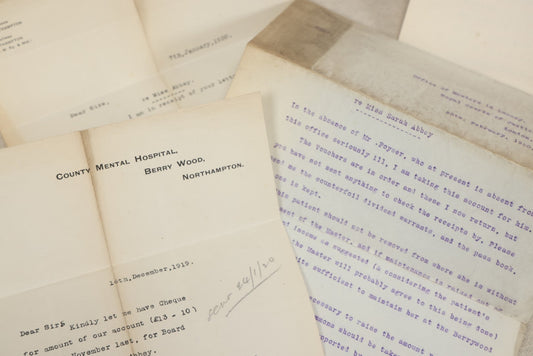 7th January, 1920.
Dear Sirs,
re Miss Abbey.
I am in receipt of your letter
COUNTY MENTAL HOSPITAL,
BERRY WOOD,
NORTHAMPTON.
10th, December, 1919.
Sent 24/1/20
Dear Sirs Kindly let me have Cheque
for amount of our account (£13 - 10)
November last, for Board
Abbey.
Office of Masters in Lunacy,
Royal Courts of Justice
London.
February, 1920
re Miss Sarah Abbey
In the absence of Mr. Poyser, who at present is absent from
this office seriously ill, I am taking this account for him.
The Vouchers are in order and these I now return, but
you have not sent anything to check the receipts by. Please
me the counterfoil dividend warrants, and the pass book,
is kept.
patient should not be removed from where she is without
of the Master, and if maintenance is raised out of
income as suggested (considering the patient's
the Master will probably agree to this being done)
sufficient to maintain her at the Berrywood
necessary to raise the amount
should be take
ported by